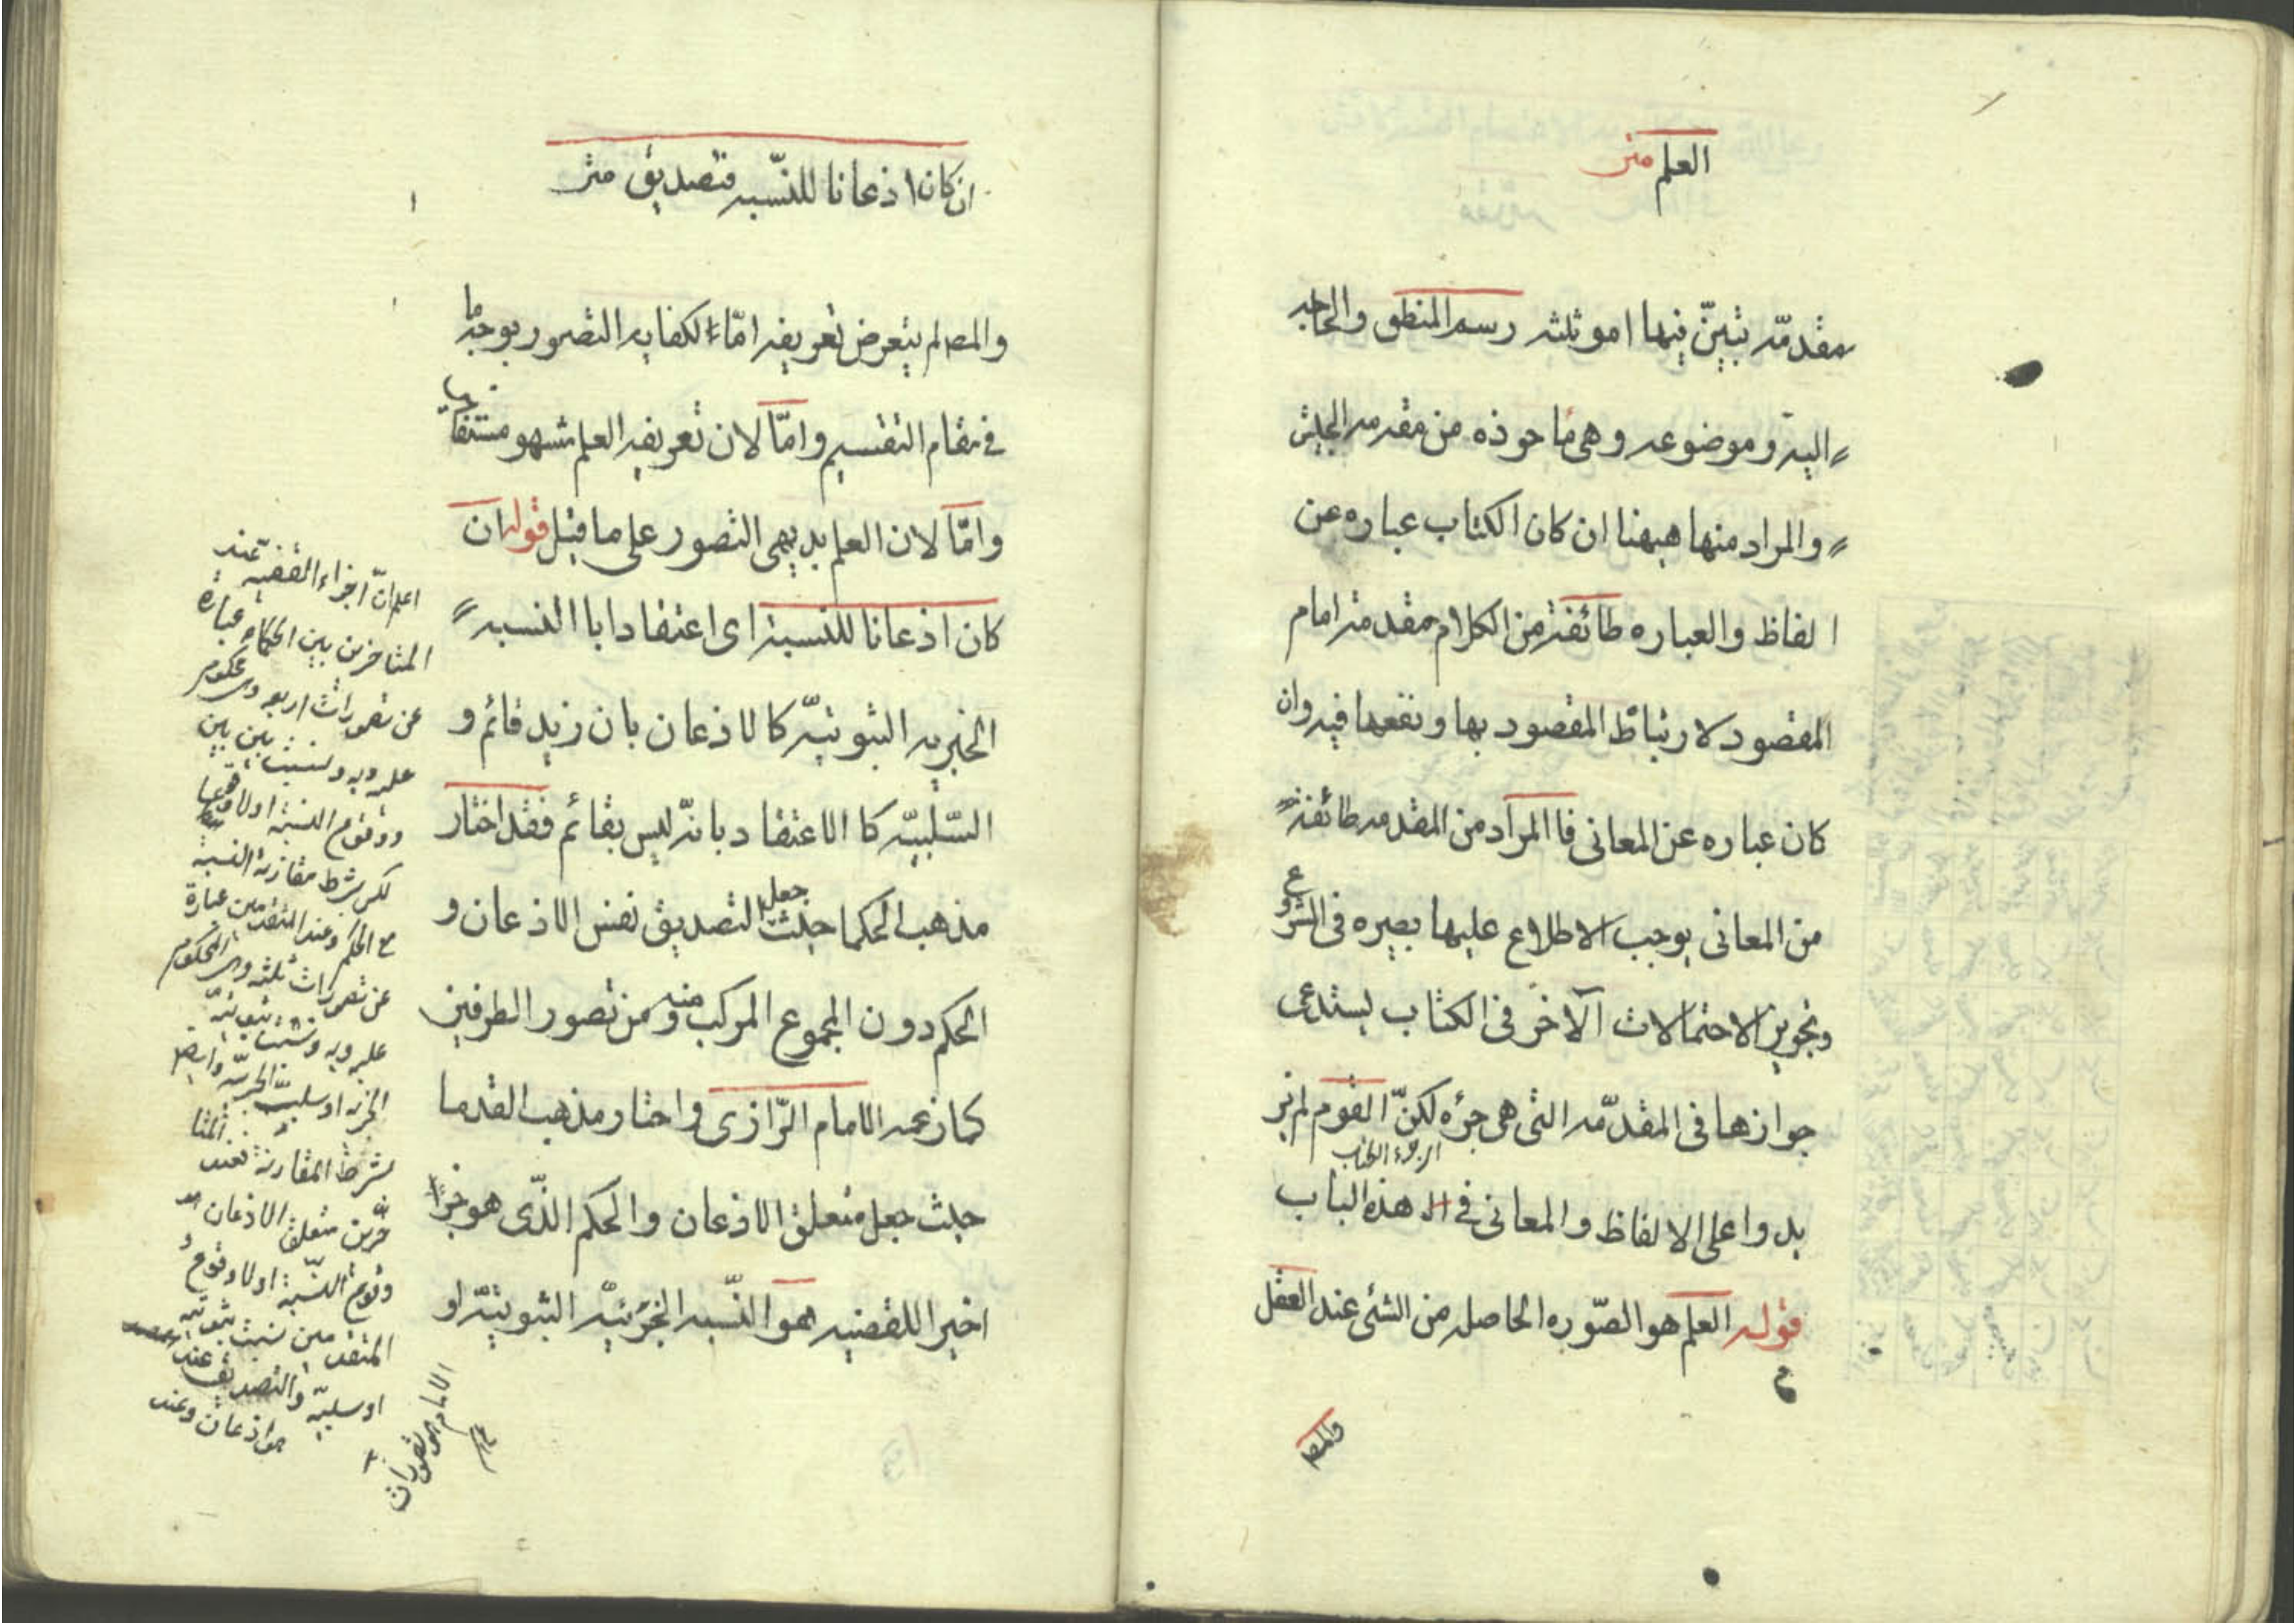 العلم متن
مقدمّه تبيّن فيها امو ثلثه رسم المنطق والحاجه
اليه وموضوعه وهى ماحوذه من مقدمه الجيش
والمراد منها هيهنا ان كان الكتاب عباره عن
الفاظ والعباره طائفة من الكلام مقدمة امام
المقصود لارتباط المقصود بها ونفعها فيه وان
كان عباره عن المعانى فاالمراد من المقدمه طائفة
من المعانى يوجب الاطلاع عليها بصيره فى الشروع
وتجويز الاحتمالات الآخر فى الكتاب يستدعى
جوازها فى المقدّمه التى هى جزءه لكنّ القوم لم يز
يدوا على الالفاظ والمعانى فى هذه الباب
قوله العلم هو الصّوره الحاصله من الشئ عند العقل
والمصـ
ان كان اذعانا للنسّبه فتصديق متن
والمصـ لم يتعرض تعريفه امّا الكفايه التصور بوجه ما
فى مقام التقسيم وامّا لان تعريفه العلم مشهو مستفا
وامّا لان العلم بديهى التصور على ما قيل قوله ان
كان اذعانا للنسبة اى اعتقادا باالنسبه
الخبريه الثبوتيّه كالاذعان بان زيد قائم و
السّلبيّه كاالاعتقاد بانّه ليس بقائم فقد اختار
مذهب الحكما حيث جعل التصديق نفس الاذعان و
الحكم دون المجموع المركب منه ومن تصور الطرفين
كما زعمه الامام الرّازى واختار مذهب القدما
حيث جعل متعلق الاذعان والحكم الذّى هو جزءا
اخير اللقضيه هو النّسبه الخبريّه الثبوتيّه او
اعلم انّ اجزاء القضيه عند
المتاخرين بين الحكماء عبارة
عن تصورات اربعه وى محكوم
عليه وبه ونسبت بين بين
ووقوع النسبة اولا وقوعها
لكن بشرط مقارنة النسبة
مع الحكم وعند المتقدّمين عبارة
عن تصورات ثلثه وى المحكوم
عليه وبه ونسبت ثبوتيّة
الخبريّه او سلبيّه الخبريّه وايضا
بشرط المقارنة فعند المتا
خّرين متعلق الاذعان هو
وقوع النسّبة اولا وقوع و
المتقدمين نسبت ثبوتيه
او سلبيّه والتصديق عند المصـ
هو اذعان وعند
الامام هو تصورات